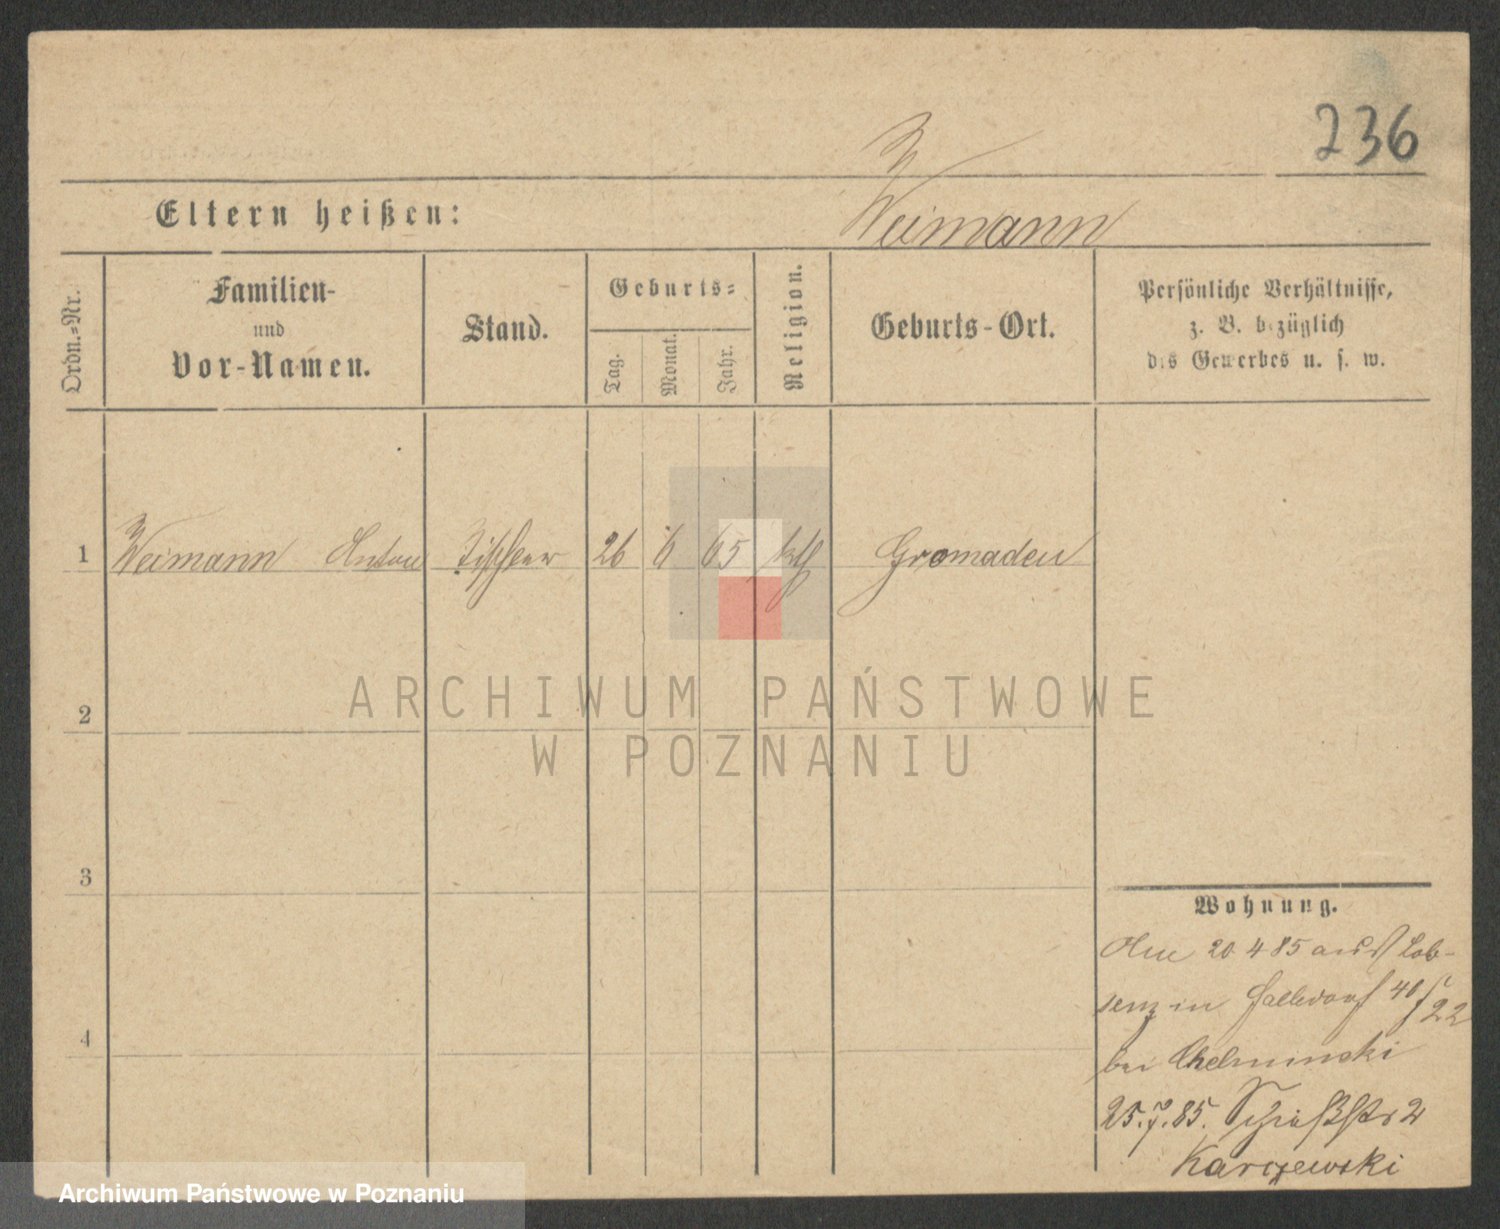 236
Weimann
Eltern heißen:
Ordn.=Nr.
Familien-
und
Vor-Namen.
Stand.
Geburts=
Tag.
Monat.
Jahr.
Religion.
Geburts-Ort.
Persönliche Verhältnisse,
z. B. bezüglich
des Gewerbes u. s. w.
1 Weimann Anton Tischler 26 6 65 kth Gromaden
ARCHIWUM PAŃSTWOWE
W POZNANIU
2
3
4
Wohnung.
20 4 85 aus Lob-
senz in 40/22
bei Chelminski
25.7.85. Schießstr 2
Karczewski
Archiwum Państwowe w Poznaniu